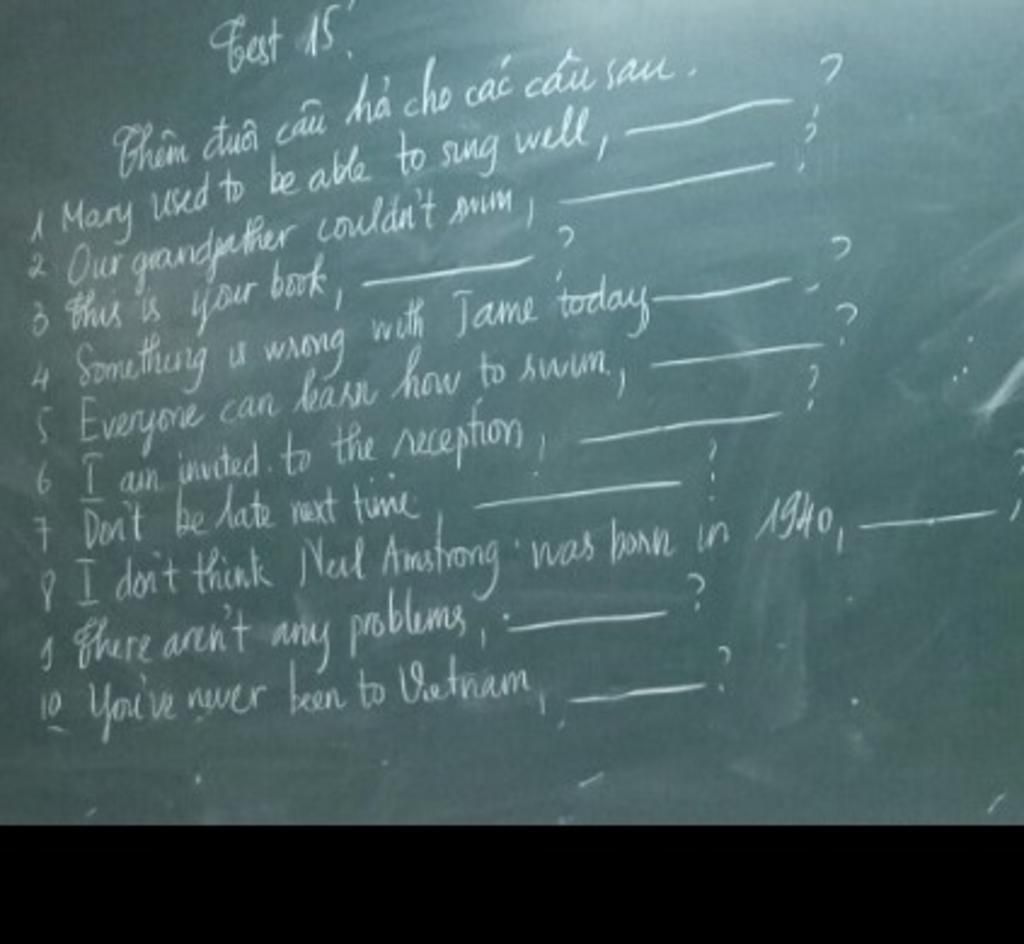 Test 15.
Thêm đuôi câu hỏi cho các câu sau.
1 Mary used to be able to sing well, ______?
2 Our grandfather couldn't swim, ______?
3 This is your book, ______?
4 Something is wrong with Jame today ______?
5 Everyone can learn how to swim, ______?
6 I am invited to the reception, ______?
7 Don't be late next time, ______?
8 I don't think Neil Amstrong was born in 1940, ______?
9 There aren't any problems, ______?
10 You've never been to Vietnam, ______?